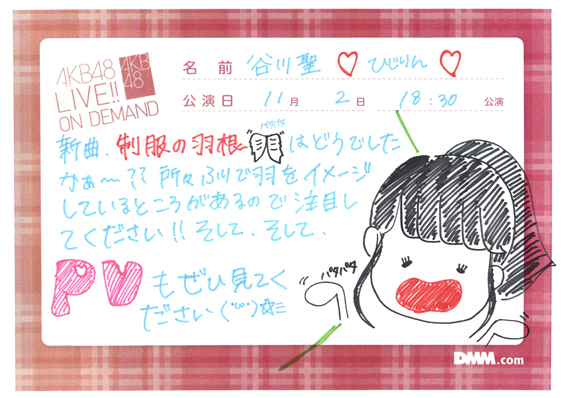 AKB48
LIVE!!
ON DEMAND
AKB
48
名前 谷川聖 ♡ ひじりん ♡
公演日 11月 2日 18:30 公演
パタパタ
新曲、制服の羽根はどうでした
かぁ〜?? 所々ふりで羽をイメージ
しているところがあるので注目し
てください!! そして、そして、
PV もぜひ見てく
ださい
パタパタ
DMM.com